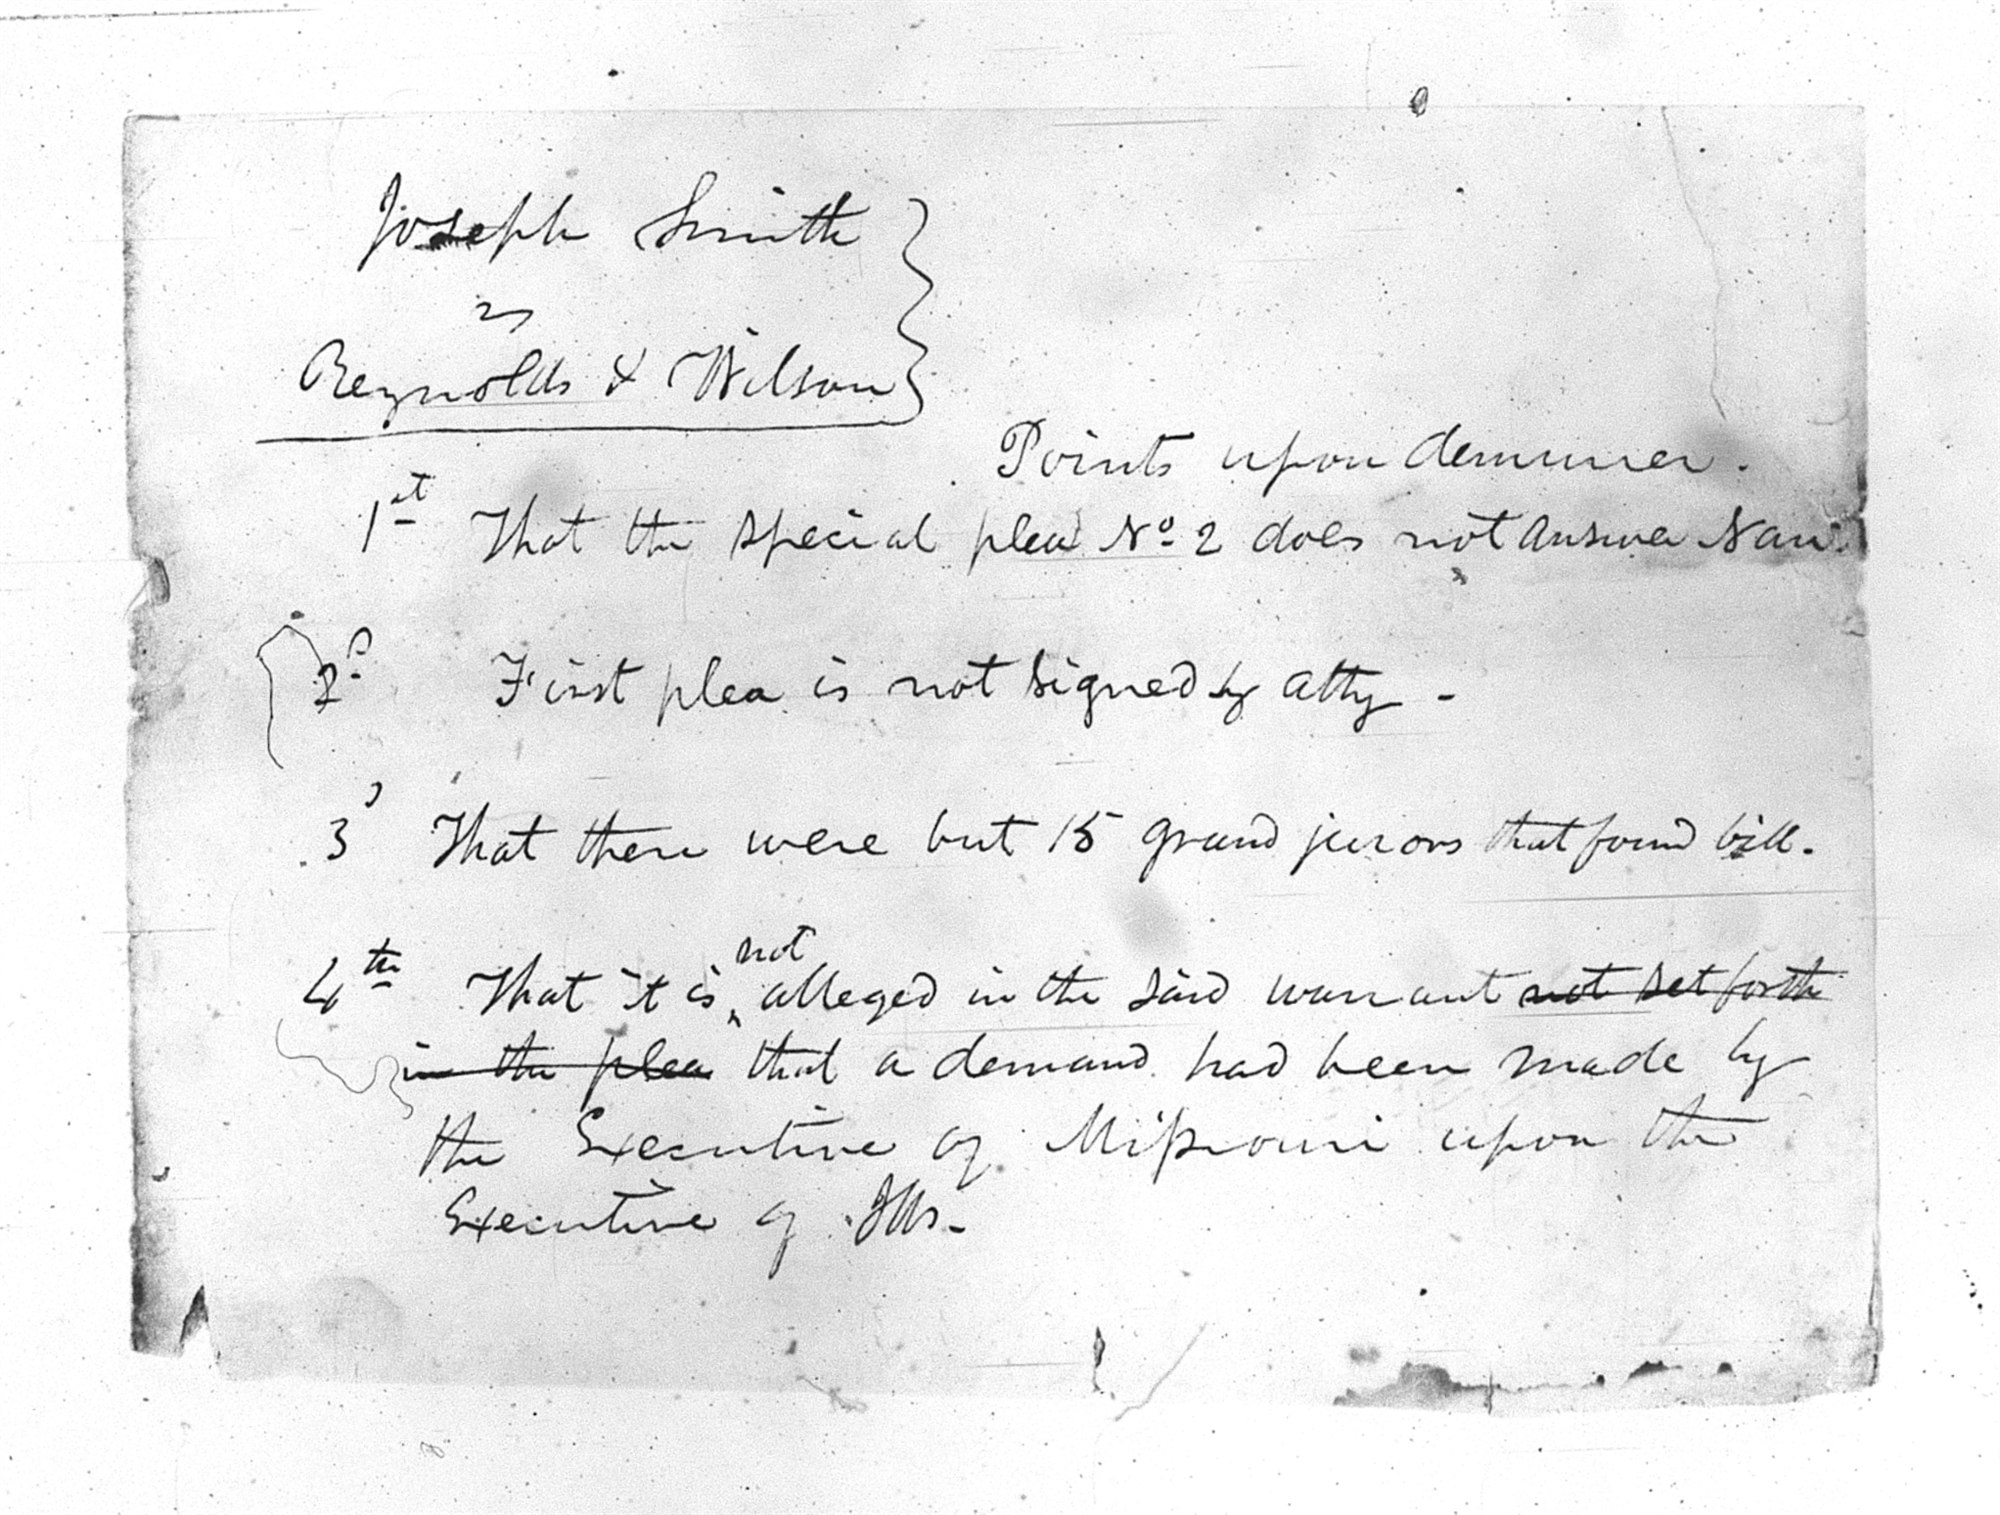 Joseph Smith
vs
Reynolds & Wilson
Points upon demurrer.
1st That the special plea No 2 does not answer Narr.
2d First plea is not signed by atty -
3d That there were but 15 grand jurors that found bill.
not
4th That it is ‸ alleged in the said warrant not set forth
in the plea that a demand had been made by
the Executive of Missouri upon the
Executive of Ills.